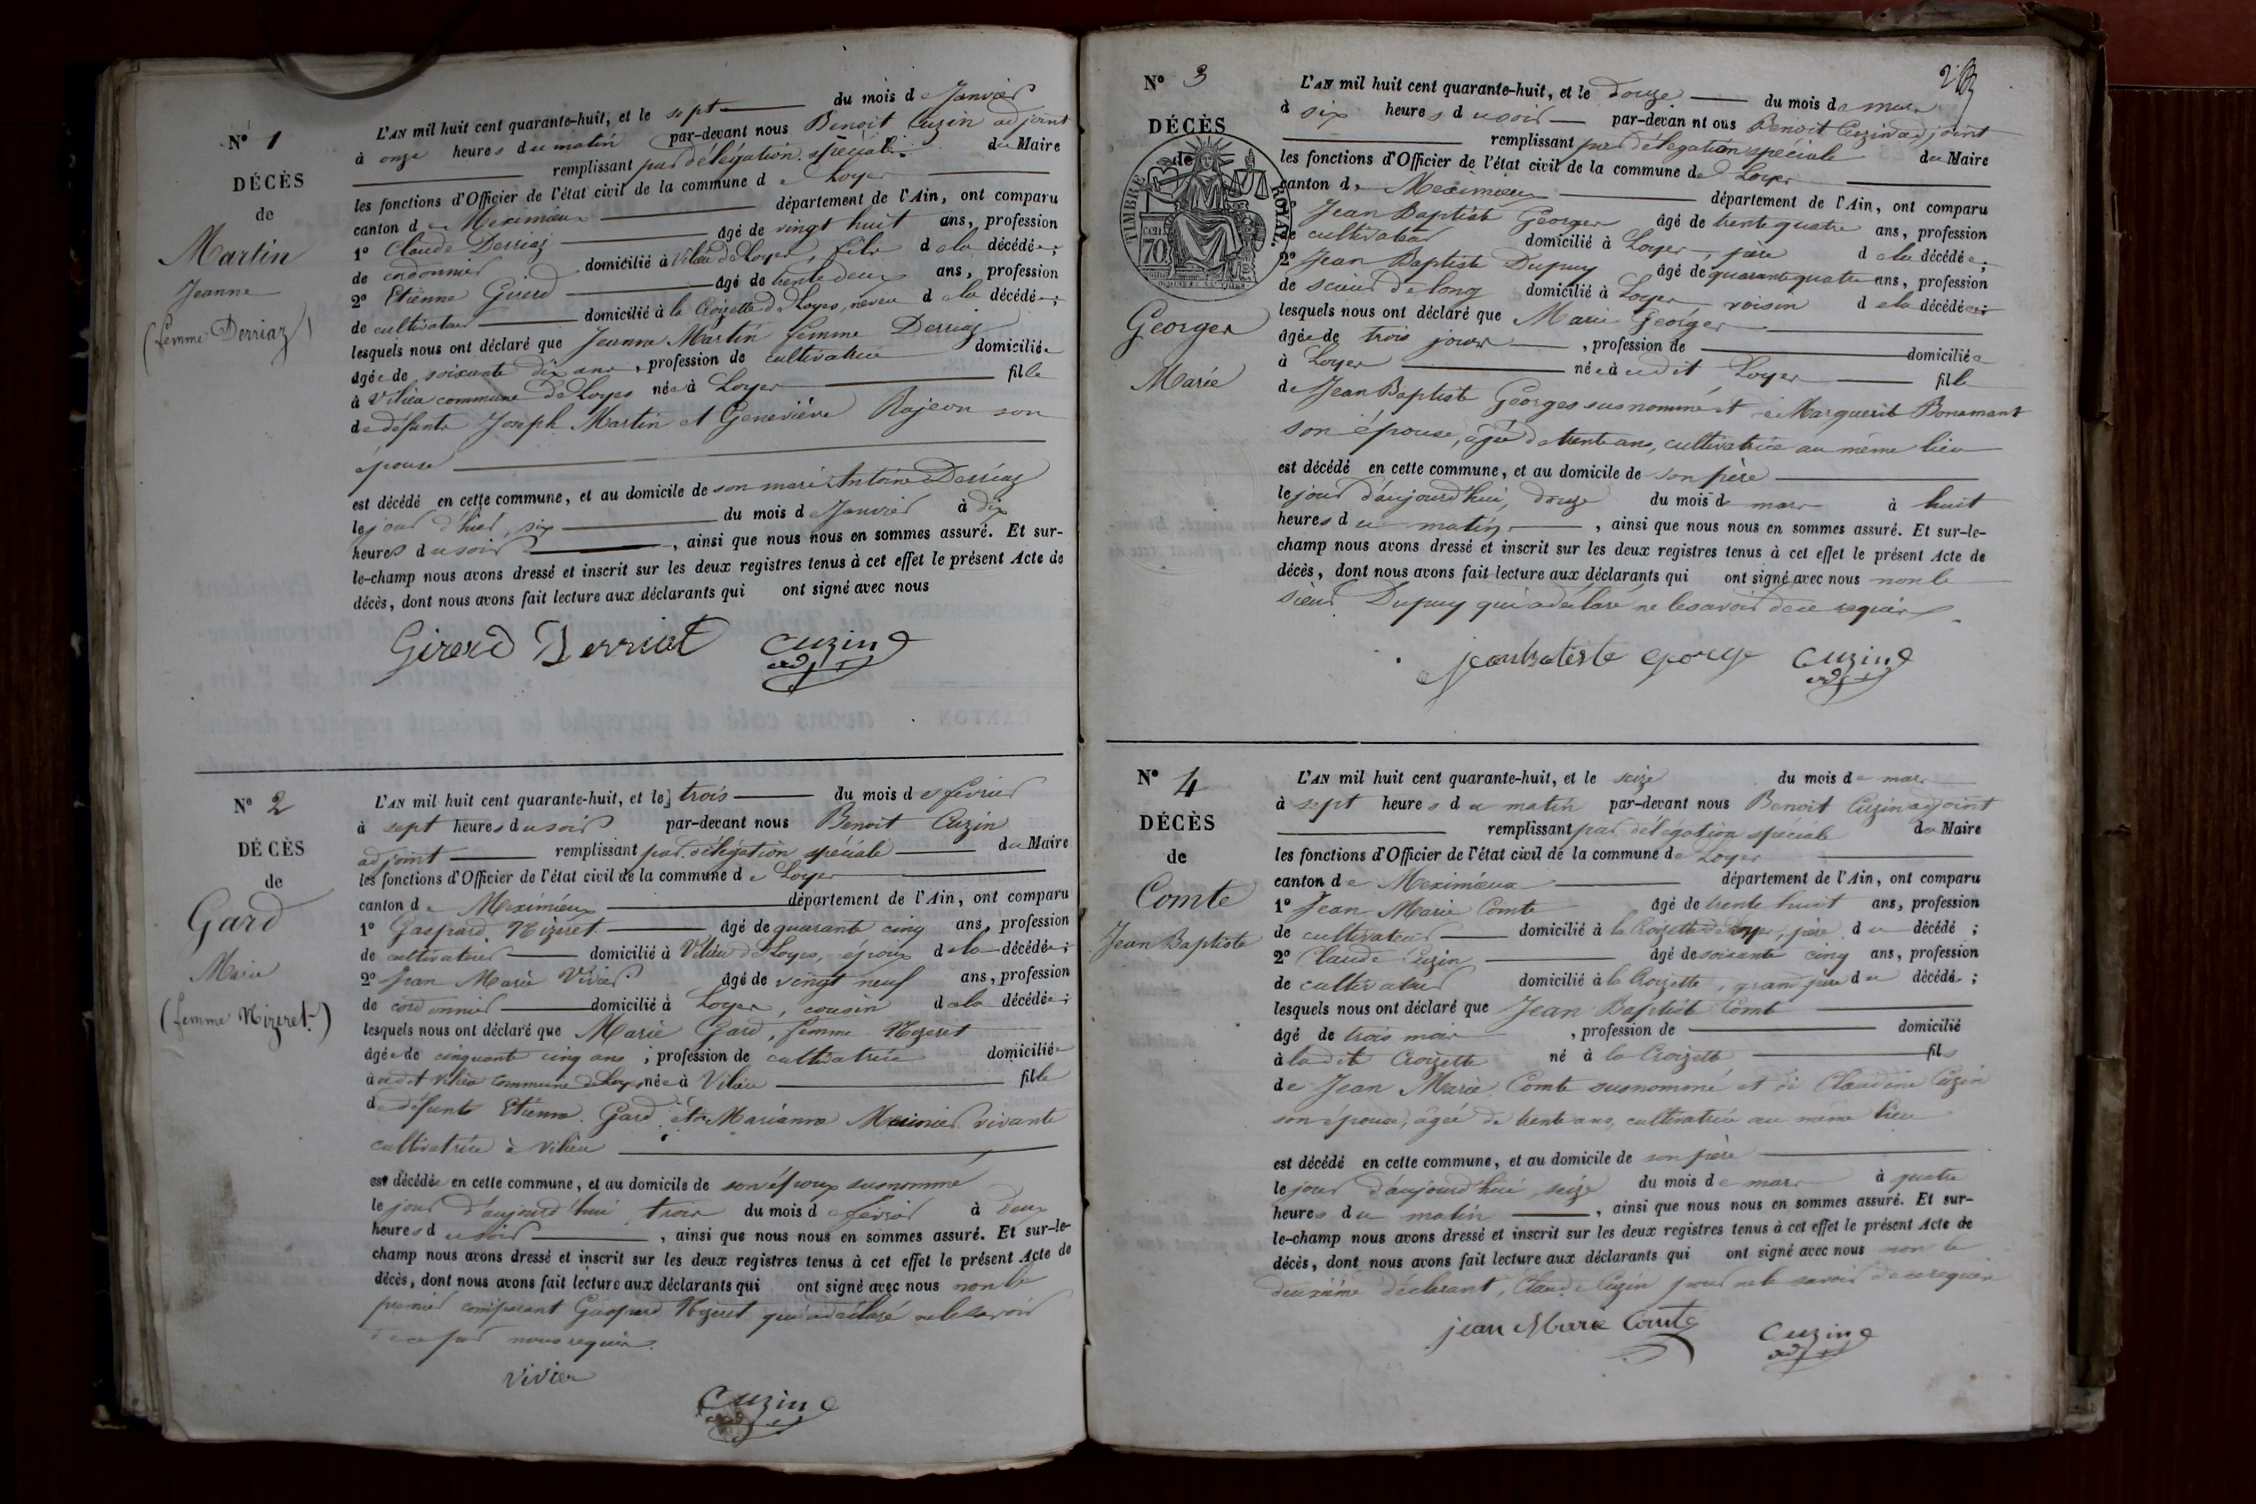 N° 1
DÉCÈS
de
Martin
Jeanne
(femme Derriaz)
L'AN mil huit cent quarante-huit, et le sept du mois de Janvier
à onze heures du matin par-devant nous Benoit Cuzin adjoint
remplissant par délégation spéciale du Maire
les fonctions d'Officier de l'état civil de la commune de Loyes
canton de Meximieux département de l'Ain, ont comparu
1° Claude Derriaz âgé de vingt huit ans, profession
de cordonnier domicilié à Vilieu de Loyes, fils de la décédée;
2° Etienne Girerd âgé de trente deux ans, profession
de cultivateur domicilié à la Croizette de Loyes, neveu de la décédée;
lesquels nous ont déclaré que Jeanne Martin femme Derriaz
âgée de soixante dix ans, profession de cultivatrice domiciliée
à Vilieu commune de Loyes née à Loyes fille
de défunts Joseph Martin et Geneviève Rajeon son
épouse
est décédé en cette commune, et au domicile de son mari Antoine Derriaz
le jour d'hier, six du mois de Janvier à dix
heures du soir, ainsi que nous nous en sommes assuré. Et sur-
le-champ nous avons dressé et inscrit sur les deux registres tenus à cet effet le présent Acte de
décès, dont nous avons fait lecture aux déclarants qui ont signé avec nous
Girerd Derriat Cuzin
adj
N° 2
DÉCÈS
de
Gard
Marie
(femme Nizeret)
L'AN mil huit cent quarante-huit, et le trois du mois de février
à sept heures du soir par-devant nous Benoit Cuzin
adjoint remplissant par délégation spéciale du Maire
les fonctions d'Officier de l'état civil de la commune de Loyes
canton de Meximieux département de l'Ain, ont comparu
1° Gaspard Nizeret âgé de quarante cinq ans, profession
de cultivateur domicilié à Vilieu de Loyes, époux de la décédée;
2° Jean Marie Vivier âgé de vingt neuf ans, profession
de cordonnier domicilié à Loyes, cousin de la décédée;
lesquels nous ont déclaré que Marie Gard, femme Nizeret
âgée de cinquante cinq ans, profession de cultivatrice domiciliée
à udit Vilieu commune de Loyes née à Vilieu fille
de défunt Etienne Gard et de Marianne Meunier vivante
cultivatrice à Vilieu
est décédée en cette commune, et au domicile de son époux susnommé
le jour d'aujourd'hui trois du mois de février à deux
heures du soir, ainsi que nous nous en sommes assuré. Et sur-le-
champ nous avons dressé et inscrit sur les deux registres tenus à cet effet le présent Acte de
décès, dont nous avons fait lecture aux déclarants qui ont signé avec nous non le
premier comparant Gaspard Nizeret qui a déclaré ne le savoir
de ce par nous requis.
Vivier
Cuzin
N° 3
DÉCÈS
de
TIMBRE ROYAL.
70
Georges
Marie
L'AN mil huit cent quarante-huit, et le douze du mois de mars
à six heures du soir par-devan nt ous Benoit Cuzin adjoint
remplissant par délégation spéciale du Maire
les fonctions d'Officier de l'état civil de la commune de Loyes
canton de Meximieux département de l'Ain, ont comparu
Jean Baptiste Georges âgé de trente quatre ans, profession
de cultivateur domicilié à Loyes, père de la décédée;
2° Jean Baptiste Dupuy âgé de quarante quatre ans, profession
de scieur de long domicilié à Loyes voisin de la décédée;
lesquels nous ont déclaré que Marie Georges
âgée de trois jours, profession de domiciliée
à Loyes née à udit Loyes fille
de Jean Baptiste Georges susnommé et de Marguerite Bonamant
son épouse, âgée de trente ans, cultivatrice au même lieu
est décédé en cette commune, et au domicile de son père
le jour d'aujourd'hui, douze du mois de mars à huit
heures du matin, ainsi que nous nous en sommes assuré. Et sur-le-
champ nous avons dressé et inscrit sur les deux registres tenus à cet effet le présent Acte de
décès, dont nous avons fait lecture aux déclarants qui ont signé avec nous non le
sieur Dupuy qui a déclaré ne le savoir de ce requis
jean batiste george Cuzin
adj
N° 4
DÉCÈS
de
Comte
Jean Baptiste
L'AN mil huit cent quarante-huit, et le seize du mois de mars
à sept heures du matin par-devant nous Benoit Cuzin adjoint
remplissant par délégation spéciale du Maire
les fonctions d'Officier de l'état civil de la commune de Loyes
canton de Meximieux département de l'Ain, ont comparu
1° Jean Marie Comte âgé de trente huit ans, profession
de cultivateur domicilié à la Croizette de Loyes, père du décédé;
2° Claude Cuzin âgé de soixante cinq ans, profession
de cultivateur domicilié à la Croizette, grand père du décédé;
lesquels nous ont déclaré que Jean Baptiste Comte
âgé de trois mois, profession de domicilié
à la dite Croizette né à la Croizette fils
de Jean Marie Comte susnommé et de Claudine Cuzin
son épouse, âgée de trente ans, cultivatrice au même lieu
est décédé en cette commune, et au domicile de son père
le jour d'aujourd'hui, seize du mois de mars à quatre
heures du matin, ainsi que nous nous en sommes assuré. Et sur-
le-champ nous avons dressé et inscrit sur les deux registres tenus à cet effet le présent Acte de
décès, dont nous avons fait lecture aux déclarants qui ont signé avec nous non le
deuxième déclarant, Claude Cuzin pour ne le savoir de ce requis
jean Marie Comte Cuzin
adj